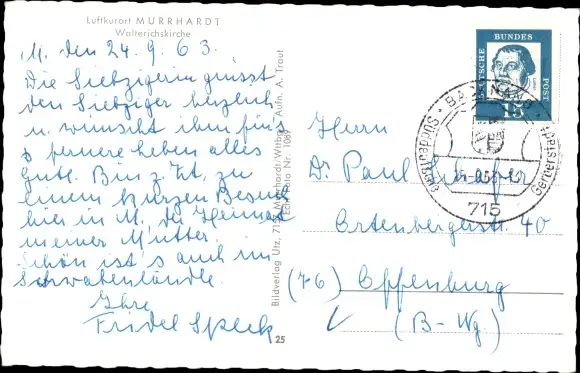 Luftkurort MURRHARDT
Walterichskirche
M. den 24. 9. 63.
Die Siebzigerin grüsst
den Siebziger herzlich
u. wünscht ihm für's
fernere Leben alles
Gute. Bin z. Zt. zu
einem kurzen Besuch
hier in M. der Heimat
meiner Mutter.
Schön ist's auch im
Schwabenländle.
Ihre
Fridel Speck
25
Bildverlag Utz, 715 Murrhardt/Württbg. Aufn. A. Traut
Echt Foto Nr. 1089
DEUTSCHE
BUNDES
POST
15
BACKNANG
715
Herrn
Dr. Paul Schafer
Ortenbergerstr. 40
(76) Offenburg
(B-Wg)